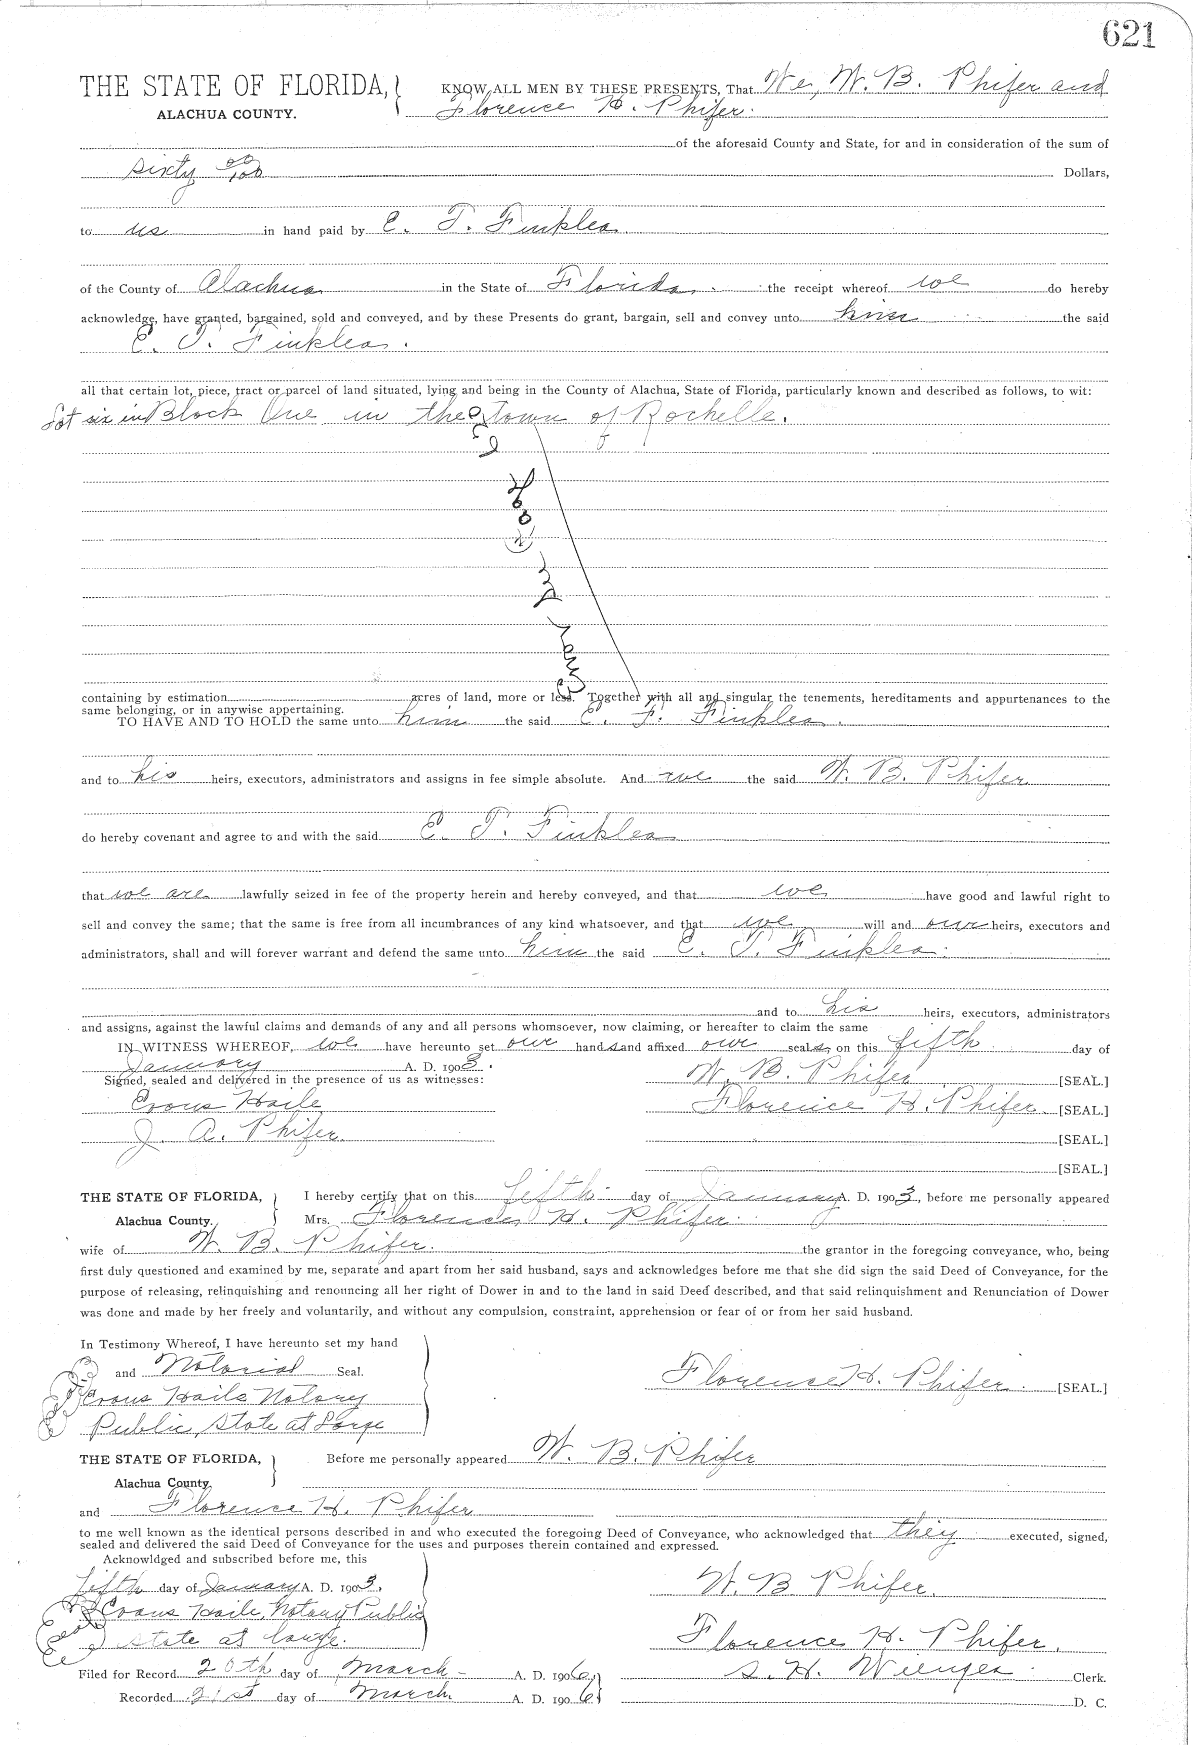 621
THE STATE OF FLORIDA, KNOW ALL MEN BY THESE PRESENTS, That We, W. B. Phifer and
ALACHUA COUNTY. Florence H. Phifer.
of the aforesaid County and State, for and in consideration of the sum of
sixty 00/100 Dollars,
to us in hand paid by E. T. Finklea
of the County of Alachua in the State of Florida. the receipt whereof we do hereby
acknowledge, have granted, bargained, sold and conveyed, and by these Presents do grant, bargain, sell and convey unto him the said
E. T. Finklea.
all that certain lot, piece, tract or parcel of land situated, lying and being in the County of Alachua, State of Florida, particularly known and described as follows, to wit:
Lot six in Block One in the town of Rochelle.
containing by estimation acres of land, more or less. Together with all and singular the tenements, hereditaments and appurtenances to the
same belonging, or in anywise appertaining.
TO HAVE AND TO HOLD the same unto him the said E. F. Finklea.
and to his heirs, executors, administrators and assigns in fee simple absolute. And we the said W. B. Phifer
do hereby covenant and agree to and with the said E. T. Finklea
that we are lawfully seized in fee of the property herein and hereby conveyed, and that we have good and lawful right to
sell and convey the same; that the same is free from all incumbrances of any kind whatsoever, and that we will and our heirs, executors and
administrators, shall and will forever warrant and defend the same unto him the said E. T. Finklea.
and to his heirs, executors, administrators
and assigns, against the lawful claims and demands of any and all persons whomsoever, now claiming, or hereafter to claim the same
IN WITNESS WHEREOF, we have hereunto set our hands and affixed our seals on this fifth day of
January A. D. 1903.
Signed, sealed and delivered in the presence of us as witnesses: W. B. Phifer [SEAL.]
Evans Haile Florence H. Phifer. [SEAL.]
J. A. Phifer. [SEAL.]
[SEAL.]
THE STATE OF FLORIDA, I hereby certify that on this fifth day of January A. D. 1903, before me personally appeared
Alachua County. Mrs. Florence H. Phifer.
wife of W. B. Phifer. the grantor in the foregoing conveyance, who, being
first duly questioned and examined by me, separate and apart from her said husband, says and acknowledges before me that she did sign the said Deed of Conveyance, for the
purpose of releasing, relinquishing and renouncing all her right of Dower in and to the land in said Deed described, and that said relinquishment and Renunciation of Dower
was done and made by her freely and voluntarily, and without any compulsion, constraint, apprehension or fear of or from her said husband.
In Testimony Whereof, I have hereunto set my hand
and Notarial Seal. Florence H. Phifer. [SEAL.]
Evans Haile Notary
Public, State at Large
THE STATE OF FLORIDA, Before me personally appeared W. B. Phifer
Alachua County.
and Florence H. Phifer
to me well known as the identical persons described in and who executed the foregoing Deed of Conveyance, who acknowledged that they executed, signed,
sealed and delivered the said Deed of Conveyance for the uses and purposes therein contained and expressed.
Acknowldged and subscribed before me, this
fifth day of January A. D. 1903, W. B Phifer.
Evans Haile, Notary Public
state at large. Florence H. Phifer.
Filed for Record 20th day of March A. D. 1906, S. H. Wienges. Clerk.
Recorded 21st day of March. A. D. 1906 D. C.